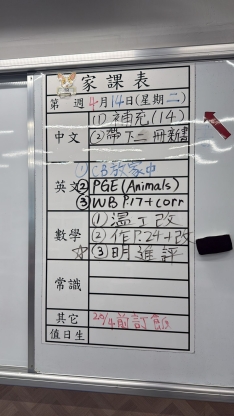 家課表
第 週 4月14日(星期二)
中文 (1) 補充(14)
(2) 帶下二冊新書
英文 ① CB放家中
② PGE(Animals)
③ WB P.17 + corr
數學 ① 溫丁改
(2) 作P.24+改
☆③ 明進評
常識
其它 20/4前訂飯
值日生